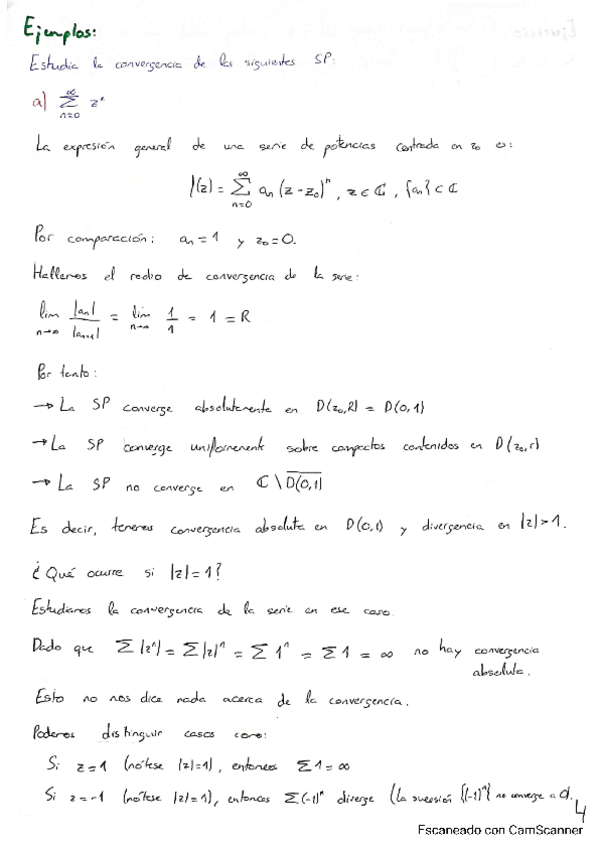 Ejemplos:
Estudia la convergencia de las siguientes SP:
a) ∑_{n=0}^{∞} zⁿ
La expresión general de una serie de potencias centrada en z₀ es:
f(z) = ∑_{n=0}^{∞} aₙ (z - z₀)ⁿ, z ∈ ℂ, {aₙ} ⊂ ℂ
Por comparación: aₙ = 1 y z₀ = 0.
Hallemos el radio de convergencia de la serie:
lim_{n→∞} |aₙ| / |aₙ₊₁| = lim_{n→∞} 1/1 = 1 = R
Por tanto:
→ La SP converge absolutamente en D(z₀,R) = D(0,1)
→ La SP converge uniformement sobre compactos contenidos en D(z₀,r)
→ La SP no converge en ℂ \ D̅(̅0̅,̅1̅)̅
Es decir, tenemos convergencia absoluta en D(0,1) y divergencia en |z|>1.
¿Qué ocurre si |z|=1?
Estudiamos la convergencia de la serie en ese caso.
Dado que ∑|zⁿ| = ∑|z|ⁿ = ∑1ⁿ = ∑1 = ∞ no hay convergencia
absoluta.
Esto no nos dice nada acerca de la convergencia.
Podemos distinguir casos como:
Si z=1 (nótese |z|=1), entonces ∑1=∞
Si z=-1 (nótese |z|=1), entonces ∑(-1)ⁿ diverge (la sucesión {(-1)ⁿ} no converge a 0).
4
Escaneado con CamScanner